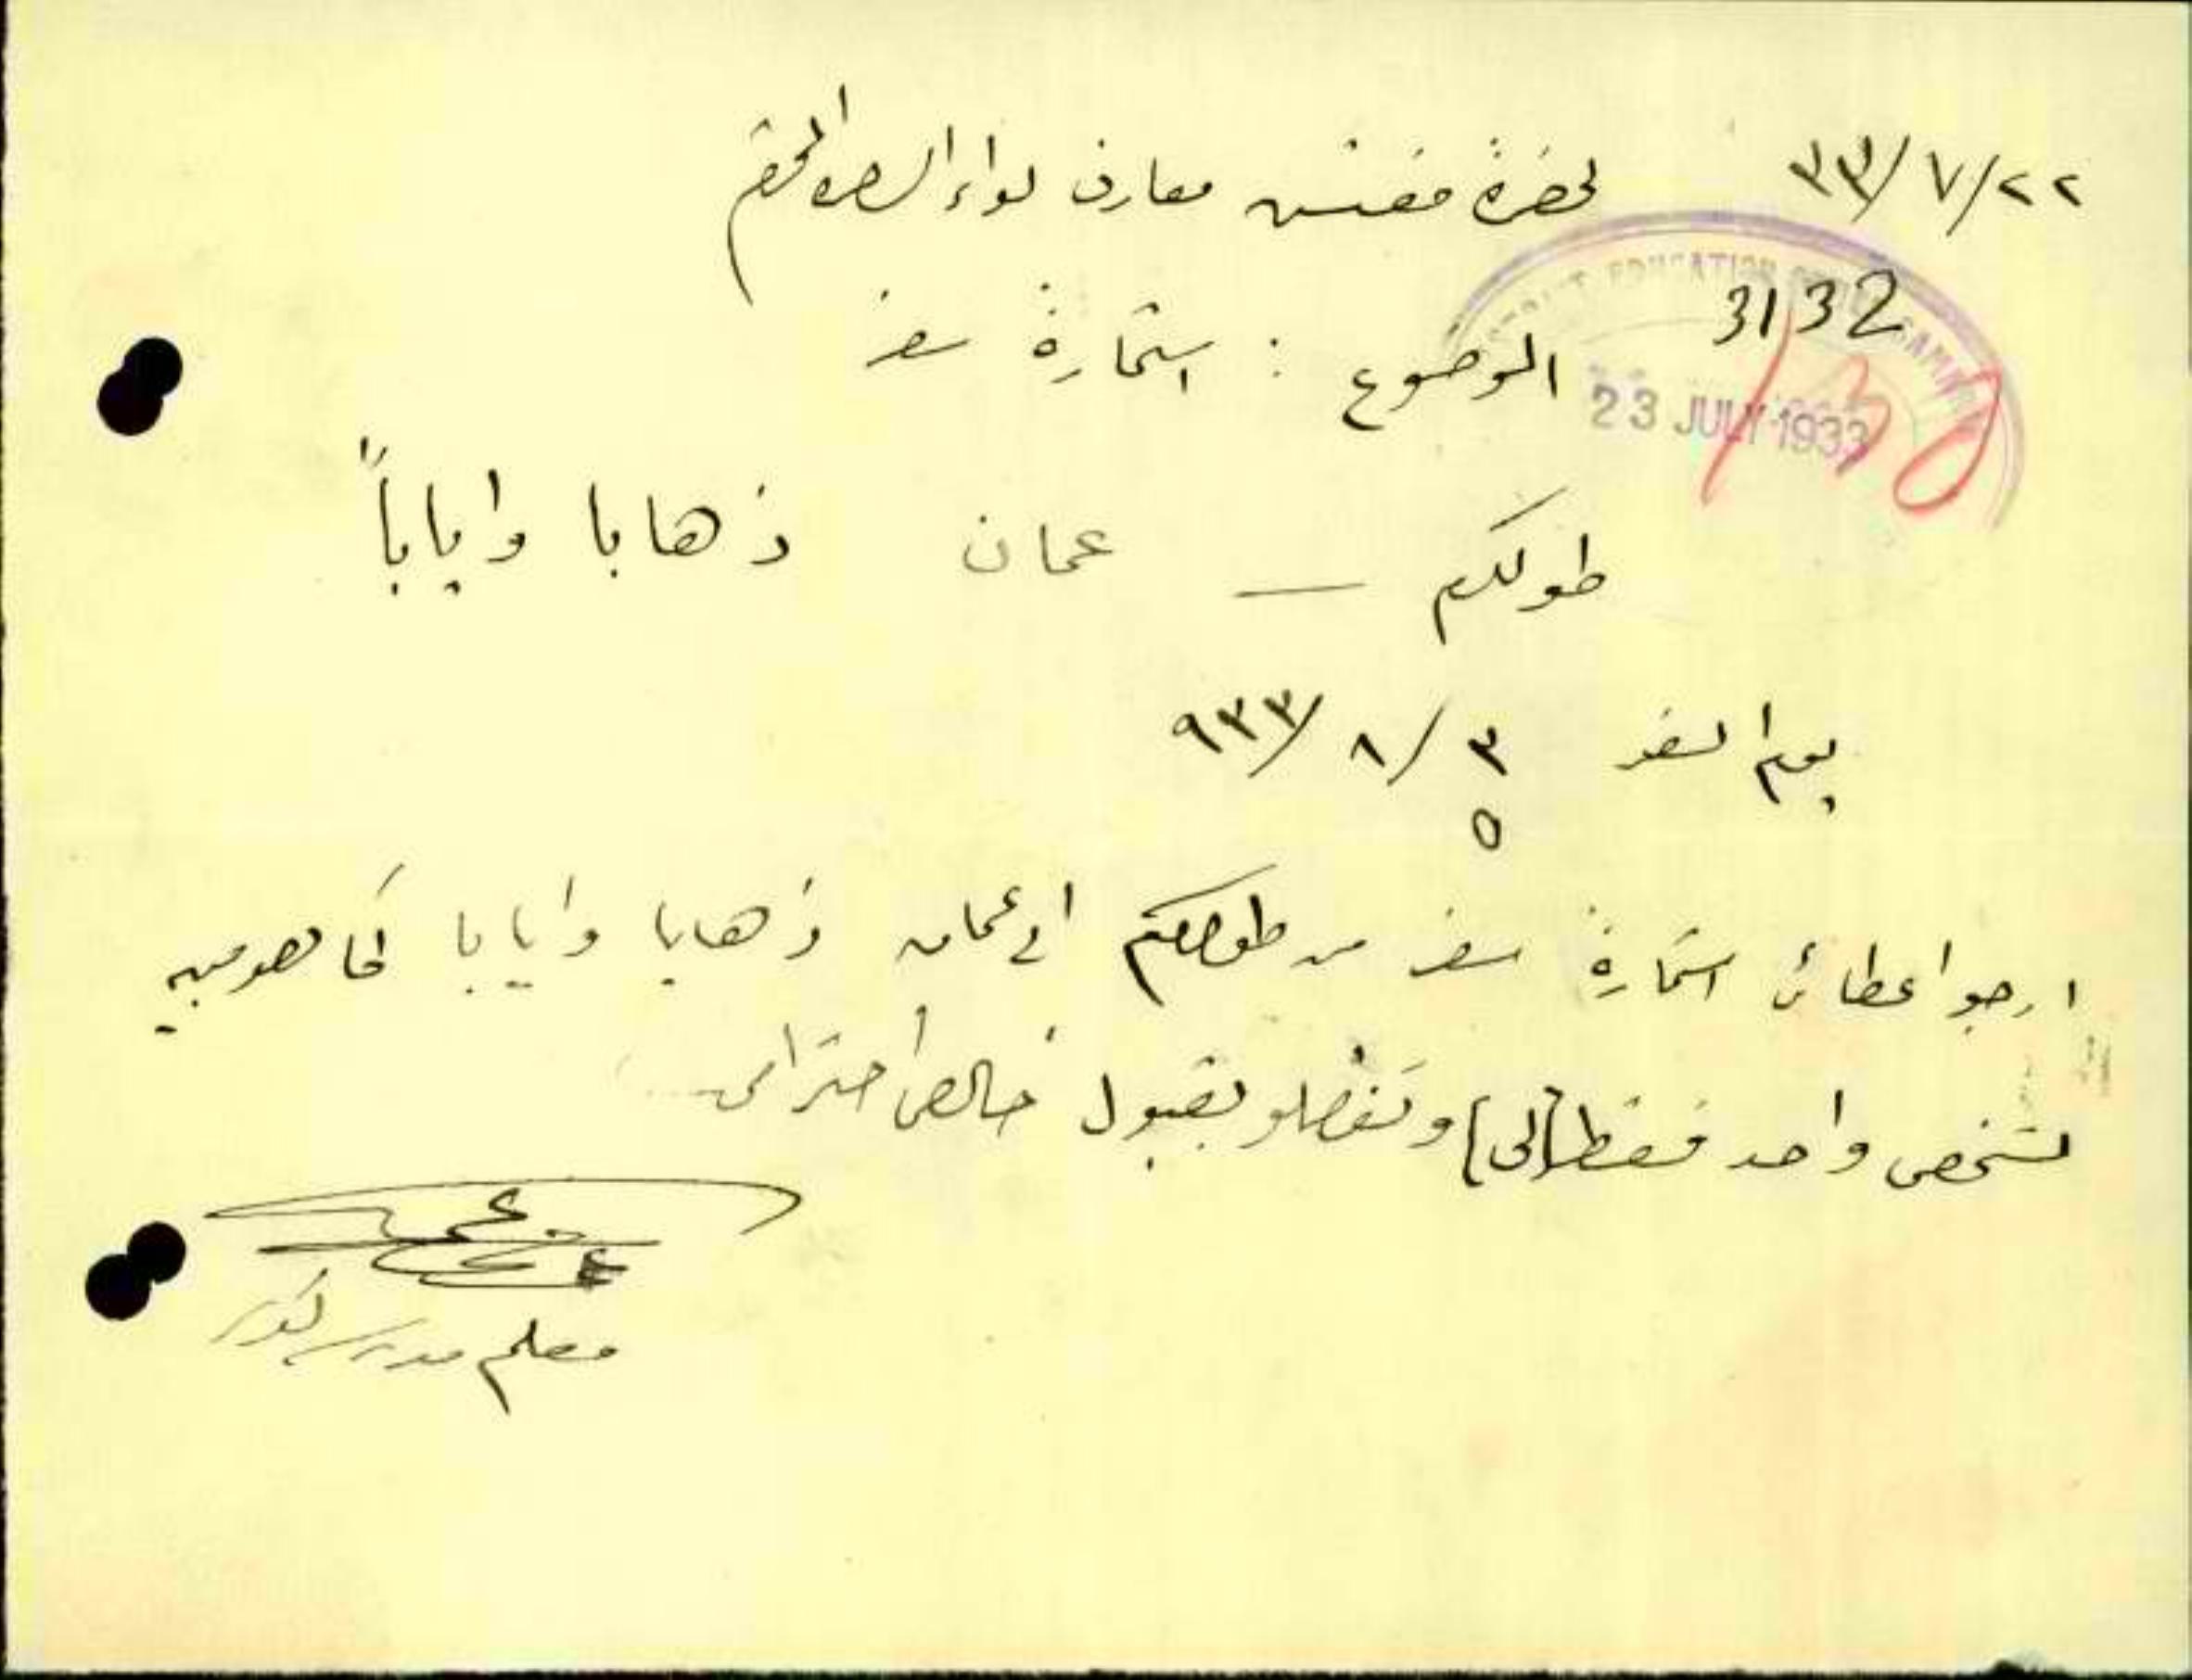 ٢٢/٧/٣٣
لحضرة مفتش معارف لواء السامره المحترم
3132
EDUCATION
23 JULY 1933
الموضوع : استمارة سفر
طولكرم — عمان ذهابا واياباً
يوم السفر ٣/٨/٩٣٣
٥
ارجو اعطائي استمارة سفر من طولكرم الى عمان ذهابا وايابا
لشخص واحد فقط (لي) وتفضلو بقبول خالص احترامي
معلم مدرسة